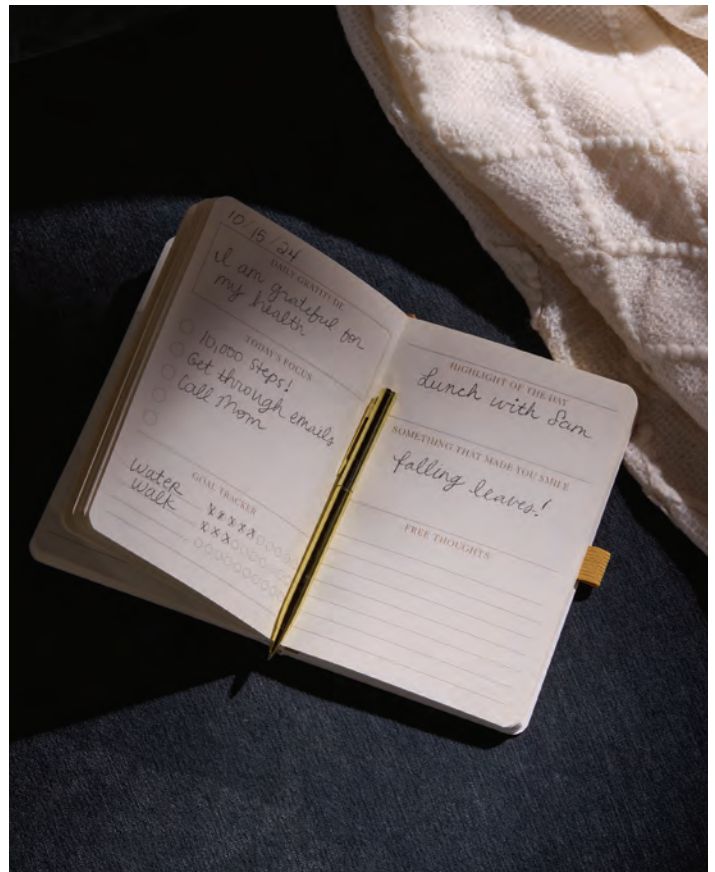 10/15/24
DAILY GRATITUDE
I am grateful for
my health
TODAY'S FOCUS
10,000 steps!
Get through emails
Call Mom
GOAL TRACKER
Water xxxxx
Walk xxx
HIGHLIGHT OF THE DAY
Lunch with Sam
SOMETHING THAT MADE YOU SMILE
falling leaves!
FREE THOUGHTS